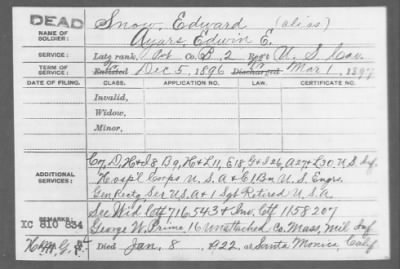 DEAD
NAME OF SOLDIER:
Snow, Edward (alias)
Ayars, Edwin E.
SERVICE:
Late rank, Pvt Co. B, 2 Reg't U. S. Cav.
TERM OF SERVICE:
Enlisted Dec 5, 1896 Discharged Mar 1, 1897
DATE OF FILING. CLASS. APPLICATION NO. LAW. CERTIFICATE NO.
Invalid,
Widow,
Minor,
ADDITIONAL SERVICES:
Co D, H & I & B 9, H & L 11, E 18 G & I 26, A 27 & L 30. U.S. Inf.
Hospl Corps U. S. A & C 1 Bn U. S. Engrs.
Gen Rectg Ser U.S.A & 1 Sgt Retired U.S.A.
REMARKS:
See Wid Ctf 716.543 & Inv. Ctf 1158207
XC 810 834
George W. Prime 16 Unattached Co. Mass. Mil Inf.
Died Jan. 8, 1922, at Santa Monica, Calif